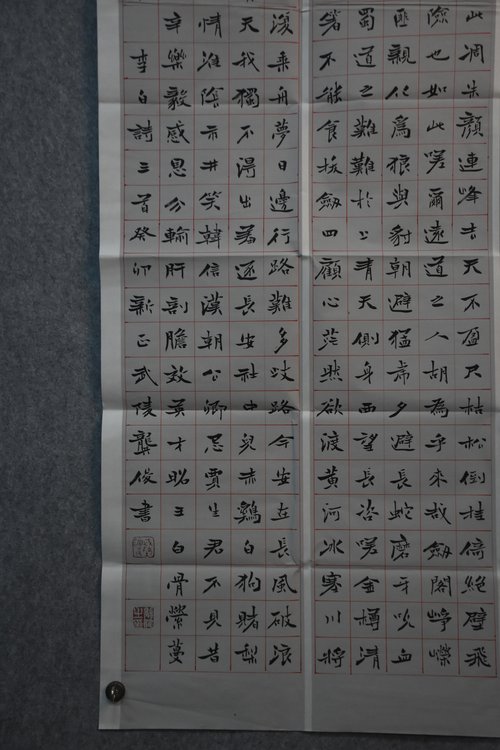 此凋朱顏連峰去天不盈尺枯松倒挂倚絕壁飛
險也如此嗟爾遠道之人胡為乎來哉劍閣崢嶸
匪親化為狼與豺朝避猛虎夕避長蛇磨牙吮血
蜀道之難難於上青天側身西望長咨嗟金樽清
箸不能食拔劍四顧心茫然欲渡黃河冰塞川將
復乘舟夢日邊行路難多歧路今安在長風破浪
天我獨不得出羞逐長安社中兒赤雞白狗賭梨
情淮陰市井笑韓信漢朝公卿忌賈生君不見昔
辛樂毅感恩分輸肝剖膽效英才昭王白骨縈蔓
李白詩三首癸卯新正武陵龔俊書